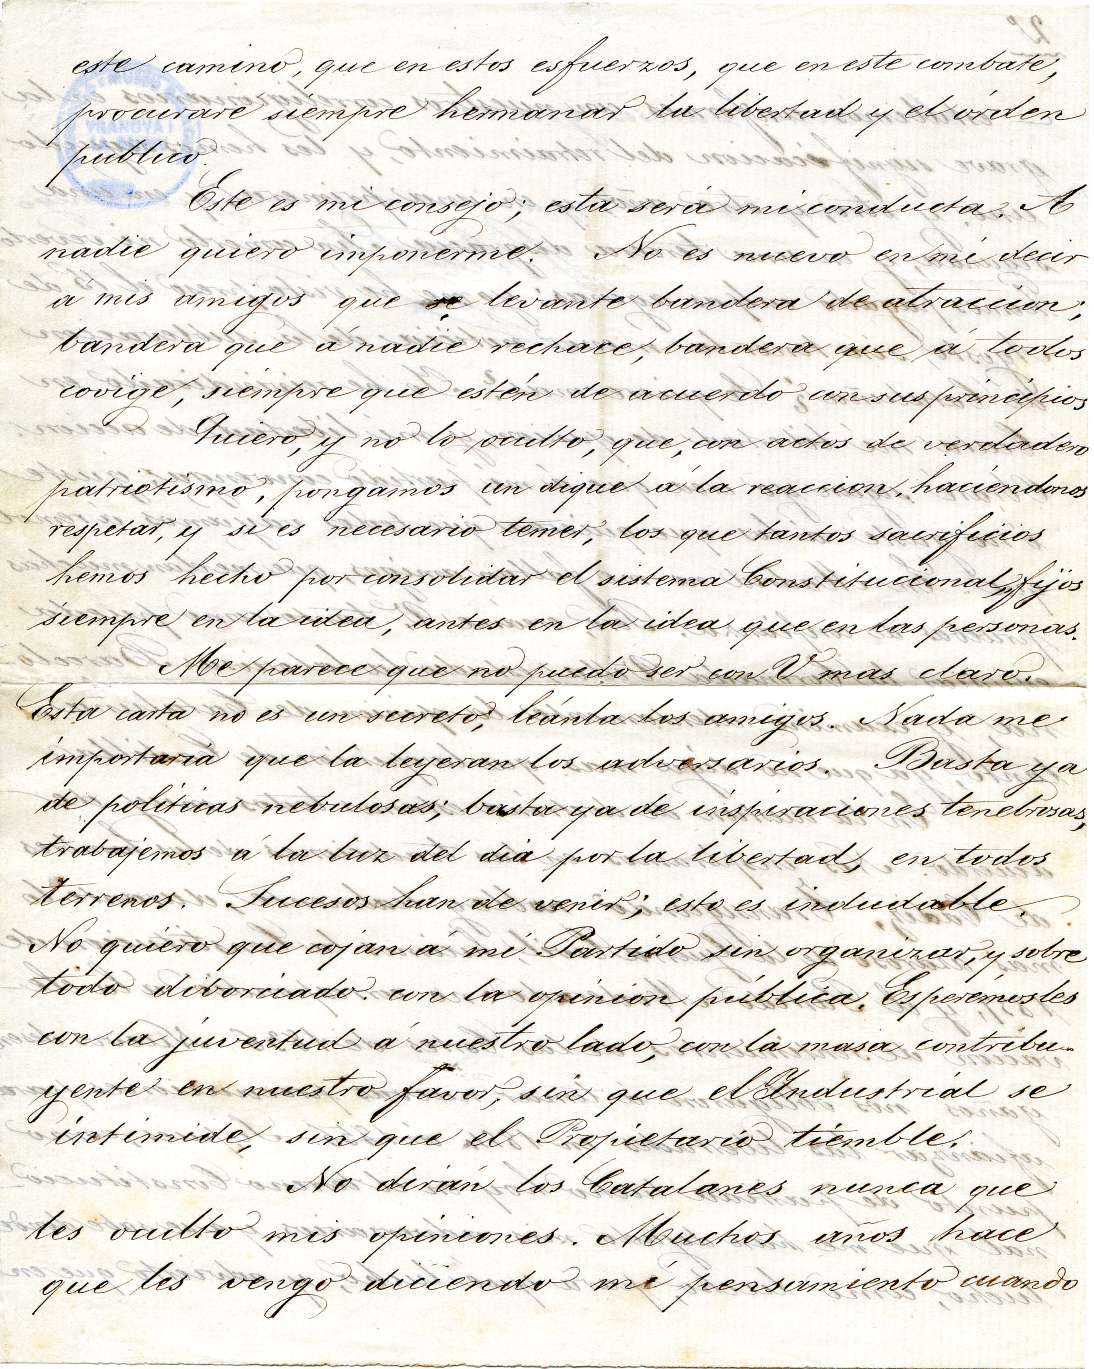 este camino, que en estos esfuerzos, que en este combate,
procurare siempre hermanar la libertad y el órden
publico.
Este es mi consejo; esta será mi conducta. A
nadie quiero imponerme. No es nuevo en mi decir
á mis amigos que se levante bandera de atraccion;
bandera que á nadie rechace, bandera que á todos
covige, siempre que estén de acuerdo con sus principios
Quiero, y no lo oculto, que, con actos de verdadero
patriotismo, pongamos un dique á la reaccion, haciéndonos
respetar, y si es necesario temer, los que tantos sacrificios
hemos hecho por consolidar el sistema Constitucional, fijos
siempre en la idea, antes en la idea que en las personas.
Me parece que no puedo ser con V mas claro.
Esta carta no es un secreto; leánla los amigos. Nada me
importaria que la leyeran los adversarios. Basta ya
de politicas nebulosas; basta ya de inspiraciones tenebrosas,
trabajemos á la luz del dia por la libertad, en todos
terrenos. Sucesos han de venir; esto es indudable.
No quiero que cojan á mi Partido sin organizar, y sobre
todo diborciado. con la opinion pública. Esperémosles
con la juventud á nuestro lado, con la masa contribu-
yente en nuestro favor, sin que el Industrial se
intimide, sin que el Propietario tiemble.
No dirán los Catalanes nunca que
les oculto mis opiniones. Muchos años hace
que les vengo diciendo mi pensamiento cuando